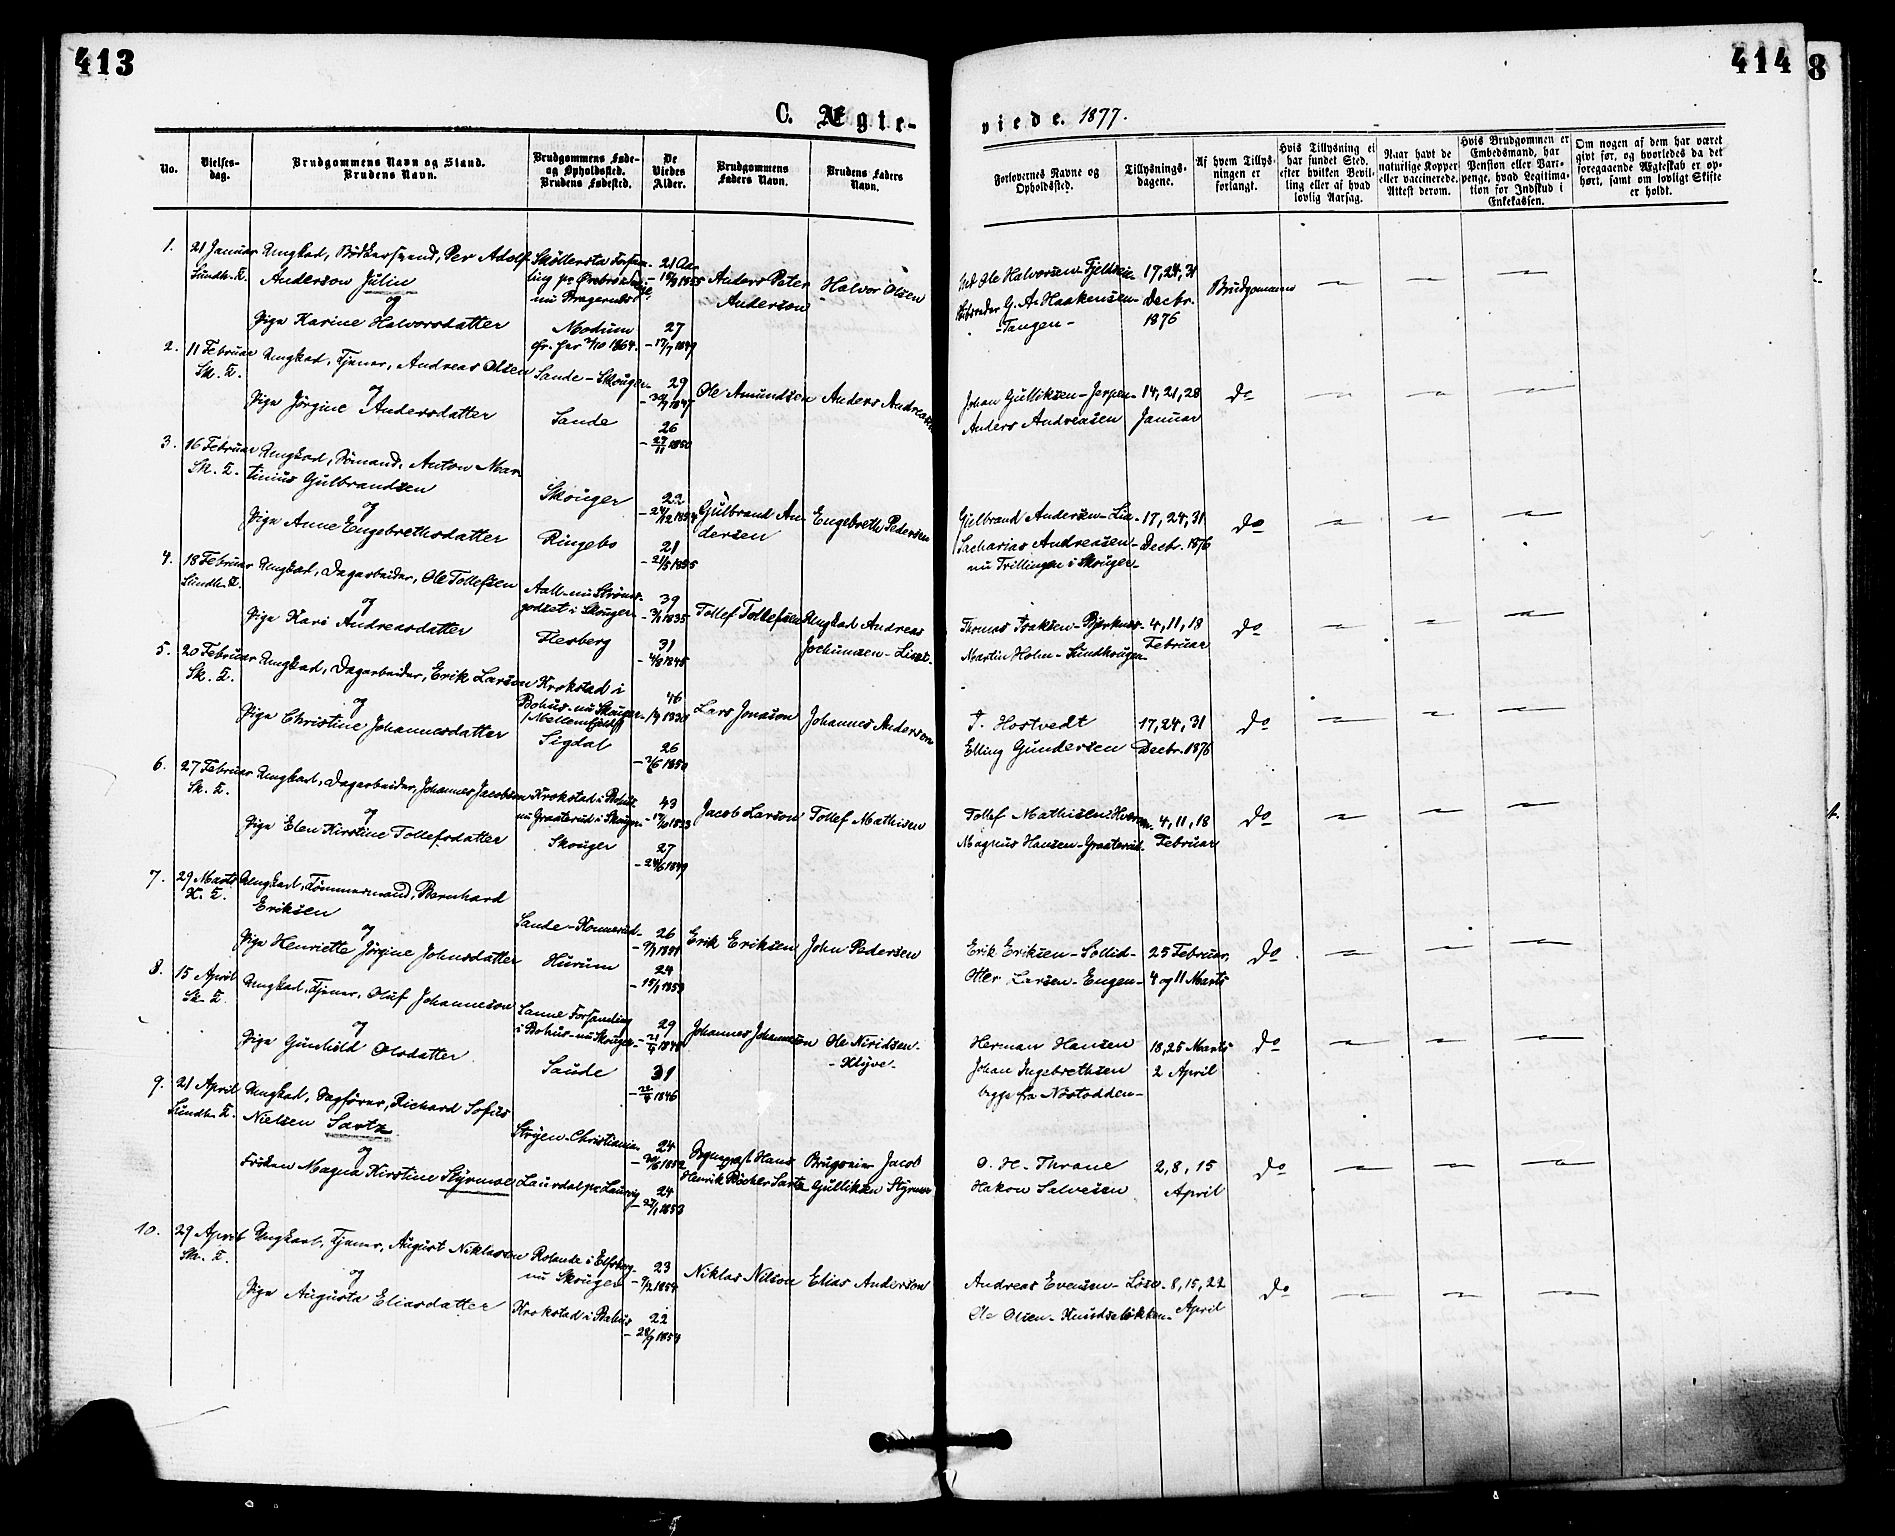 413
414
8
C. Ægte-
viede. 1877.
No.
Vielses-
dag.
Brudgommens Navn og Stand.
Brudens Navn.
Brudgommens Føde-
og Opholdssted.
Brudens Fødested.
De
Viedes
Alder.
Brudgommens
Faders Navn.
Brudens Faders
Navn.
Forlovernes Navne og
Opholdssted.
Tillysnings-
dagene.
Af hvem Tillys-
ningen er
forlangt.
Hvis Tillysning ei
har fundet Sted,
efter hvilken Bevil-
ling eller af hvad
lovlig Aarsag.
Naar havt de
naturlige Kopper
eller vaccinerede.
Attest derom.
Hvis Brudgommen er
Embedsmand, har
Pension eller Vart-
penge, hvad Legitima-
tion for Indskud i
Enkekassen.
Om nogen af dem har været
gift før, og hvorledes da det
foregaaende Ægteskab er op-
hørt, samt om lovligt Skifte
er holdt.
1.
21 Januar
Sundh. K.
Ungkarl, Bødkersvend, Per Adolf
Anderson Julin
og
Pige Karine Halvorsdatter
Sköllersta Forsam-
ling pr Örebro
nu Bragernes
Modum
27
17/7 1849
Anders Peter
Anderson
Halvor Olsen
Ole Halvorsen
G. A. Haakensen
-Tangen-
17, 24, 31
Decbr.
1876
Brudgommen
2.
11 Februar
Sk. K.
Ungkarl, Tjener, Andreas Olsen
og
Pige Jørgine Andersdatter
Sande - Skouger
Sande
29
1847
26
27/11 1850
Ole Amundsen
Anders Andreasen
Johan Gulliksen - Jerpen
Anders Andreasen
14, 21, 28
Januar
Do
3.
16 Februar
Sk. K.
Ungkarl, Sømand, Anton Mar-
tinius Gulbrandsen
og
Pige Anne Engebrethsdatter
Skouger
Ringebo
22
24/12 1854
21
21/5 1855
Gulbrand An-
dersen
Engebreth Pedersen
Gulbrand Andersen - Lia
Sacharias Andreasen
nu Trillingen i Skouger
17, 24, 31
Decbr. 1876
Do
4.
18 Februar
Sundh. K.
Ungkarl, Dagarbeider, Ole Tollefsen
og
Pige Kari Andreasdatter
Aall - nu Strøms-
godset i Skouger
Flesberg
39
1835
31
1845
Tollef Tollefsen
Ungkarl Andreas
Jochumsen -
Thomas Isaksen - Bjerknes
Martin Holm - Sundhougen
4, 11, 18
Februar
Do
5.
20 Februar
Sk. K.
Ungkarl, Dagarbeider, Erik Larson
og
Pige Christine Johannesdatter
Krokstad i
Bohus - nu Skouger
Sigdal
46
26
2/6 1850
Lars Jonason
Johannes Andersen
T. Hostvedt
Elling Gundersen
17, 24, 31
Decbr. 1876
Do
6.
27 Februar
Sk. K.
Ungkarl, Dagarbeider, Johannes Jacobson
og
Pige Elen Kirstine Tollefsdatter
Krokstad i Bohus
nu Graaterud i Skouger
Skouger
43
1833
27
24/6 1849
Jacob Larson
Tollef Mathisen
Tollef Mathisen
Magnus Hansen - Graaterud
4, 11, 18
Februar
Do
7.
29 Marts
K. K.
Ungkarl, Tømmermand, Bernhard
Eriksen
og
Pige Henriette Jørgine Johnsdatter
Sande - Konnerud
Hurum
26
24
1853
Erik Eriksen
John Pedersen
Erik Eriksen - Sollid
Otter Larsen - Engen
25 Februar,
4 og 11 Marts
Do
8.
15 April
Sk. K.
Ungkarl, Tjener, Oluf Johanneson
og
Pige Gunhild Olsdatter
Sanne Forsamling
i Bohus - nu Skouger
Saude
29
31
1846
Johannes Johanneson
Ole Neridsen
- Klyve -
Herman Hansen
Johan Ingebrethsen
begge fra Nøstodden
18, 25 Marts
2 April
Do
9.
21 April
Sundh. K.
Ungkarl, Sagfører, Richard Sofus
Nielsen Sartz
og
Frøken Magna Kirstine Styrmoe
Strøjen - Christiania
Laurdal pr Laurvig
24
1852
24
27/1 1853
Sogneprest Hans
Henrik Richter Sartz
Brugseier Jacob
Gulliksen Styrmoe
O. H. Thrane
Hakon Salvesen
2, 8, 15
April
Do
10.
29 April
Sk. K.
Ungkarl, Tjener, August Niklason
og
Pige Augusta Eliasdatter
Rolanda i Elfsborg
nu Skouger
Krokstad i Bahus
23
7/2 1854
22
1854
Niklas Nilson
Elias Anderson
Andreas Evensen
Ole Olsen - Knudseløkken
8, 15, 22
April
Do